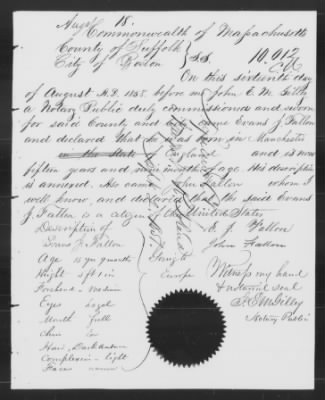 Augst 18.
Commonwealth of Massachusetts
County of Suffolk } S.S. 10,912
City of Boston
On this sixteenth day
of August A.D. 1865. before me John E. M. Gilley
a Notary Public duly commissioned and sworn
for said County and City came Evans J. Fallon
and declared that he was born in Manchester
in the state of England and is now
fifteen years and nine months of age. His description
is annexed. Also came John Fallon whom I
well know, and declared that the said Evans
J. Fallon is a citizen of the United States
Description of
Evans J. Fallon
E. J. Fallon
John Fallon
Age 15 yrs 9 months
Hight 5 ft 1 in
Forehead - medium
Eyes hazel
Mouth full
Chin
Hair, Dark Auburn
Complexion - light
Face
Going to
Europe
Witness my hand
& notarial seal
J. E. M. Gilley
Notary Public